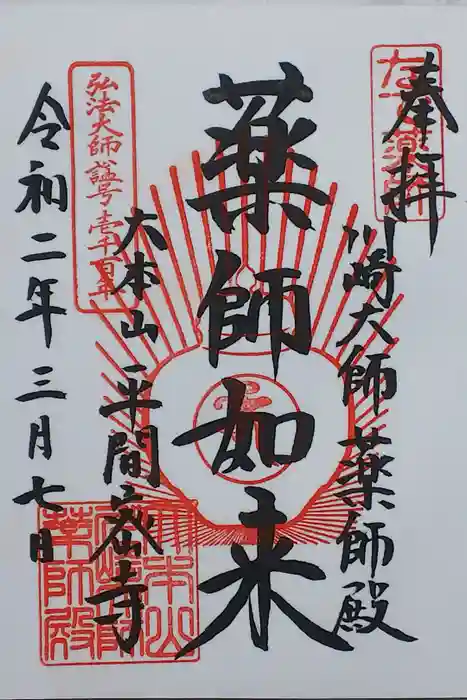 奉拝
川崎大師 薬師殿
薬師如来
大本山 平間寺
弘法大師諡号壱千百年
令和二年三月七日
大本山
川崎大師
薬師殿